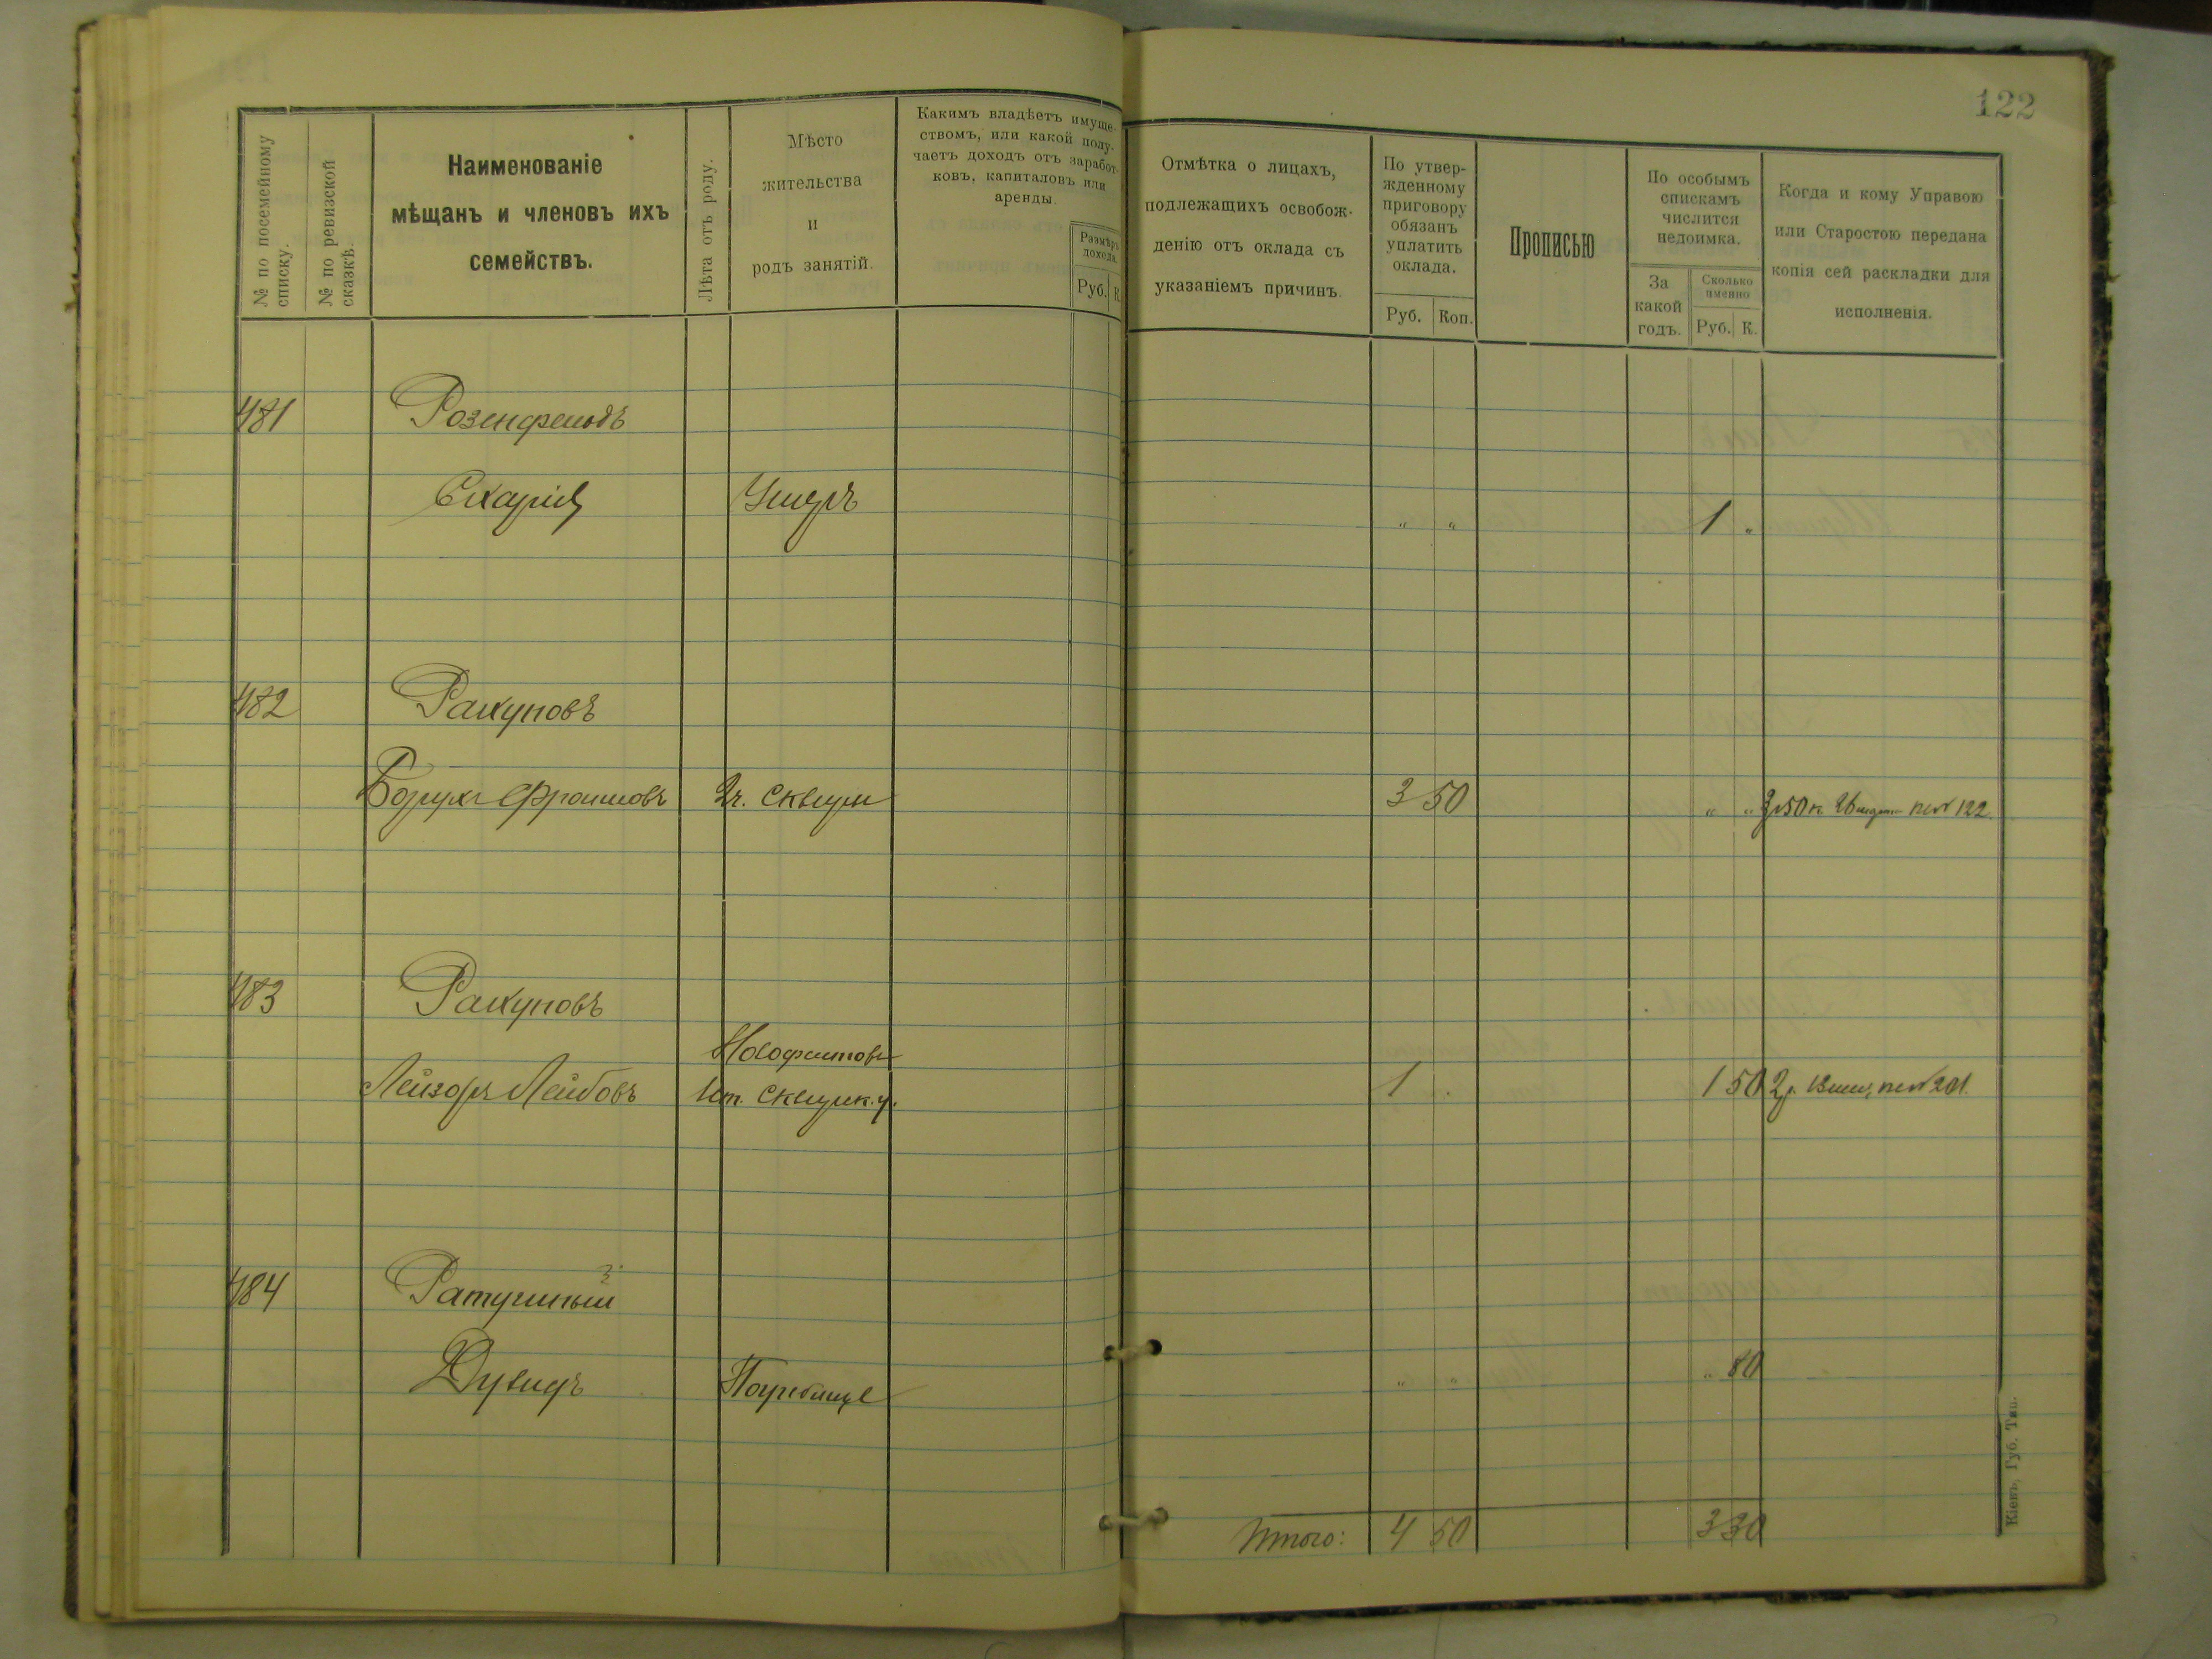 122
№ по посемейному списку.
№ по ревизской сказкѣ.
Наименованіе
мѣщанъ и членовъ ихъ
семействъ.
Лѣта отъ роду.
Мѣсто
жительства
и
родъ занятій.
Какимъ владѣетъ имуще-
ствомъ, или какой полу-
чаетъ доходъ отъ заработ-
ковъ, капиталовъ или
аренды.
Размѣръ
дохода.
Руб. К.
Отмѣтка о лицахъ,
подлежащихъ освобож-
денію отъ оклада съ
указаніемъ причинъ.
По утвер-
жденному
приговору
обязанъ
уплатить
оклада.
Руб. Коп.
Прописью
По особымъ
спискамъ
числится
недоимка.
За
какой
годъ.
Сколько
именно
Руб. К.
Когда и кому Управою
или Старостою передана
копія сей раскладки для
исполненія.
481 Розенфельдъ
Сахарія Умеръ „ „ 1 „
482 Рахуновъ
Борухъ Фроимовъ г. Сквира 3 50 „ „ 3р50к. 122.
483 Рахуновъ
Новофастовъ
Лейзоръ Лейбовъ Сквирск. у. 1 „ 1 50 2р. 201.
484 Ратушный
Дувидъ Погребище „ „ „ 80
Итого: 4 50 3 30
Кіевъ, Губ. Тип.